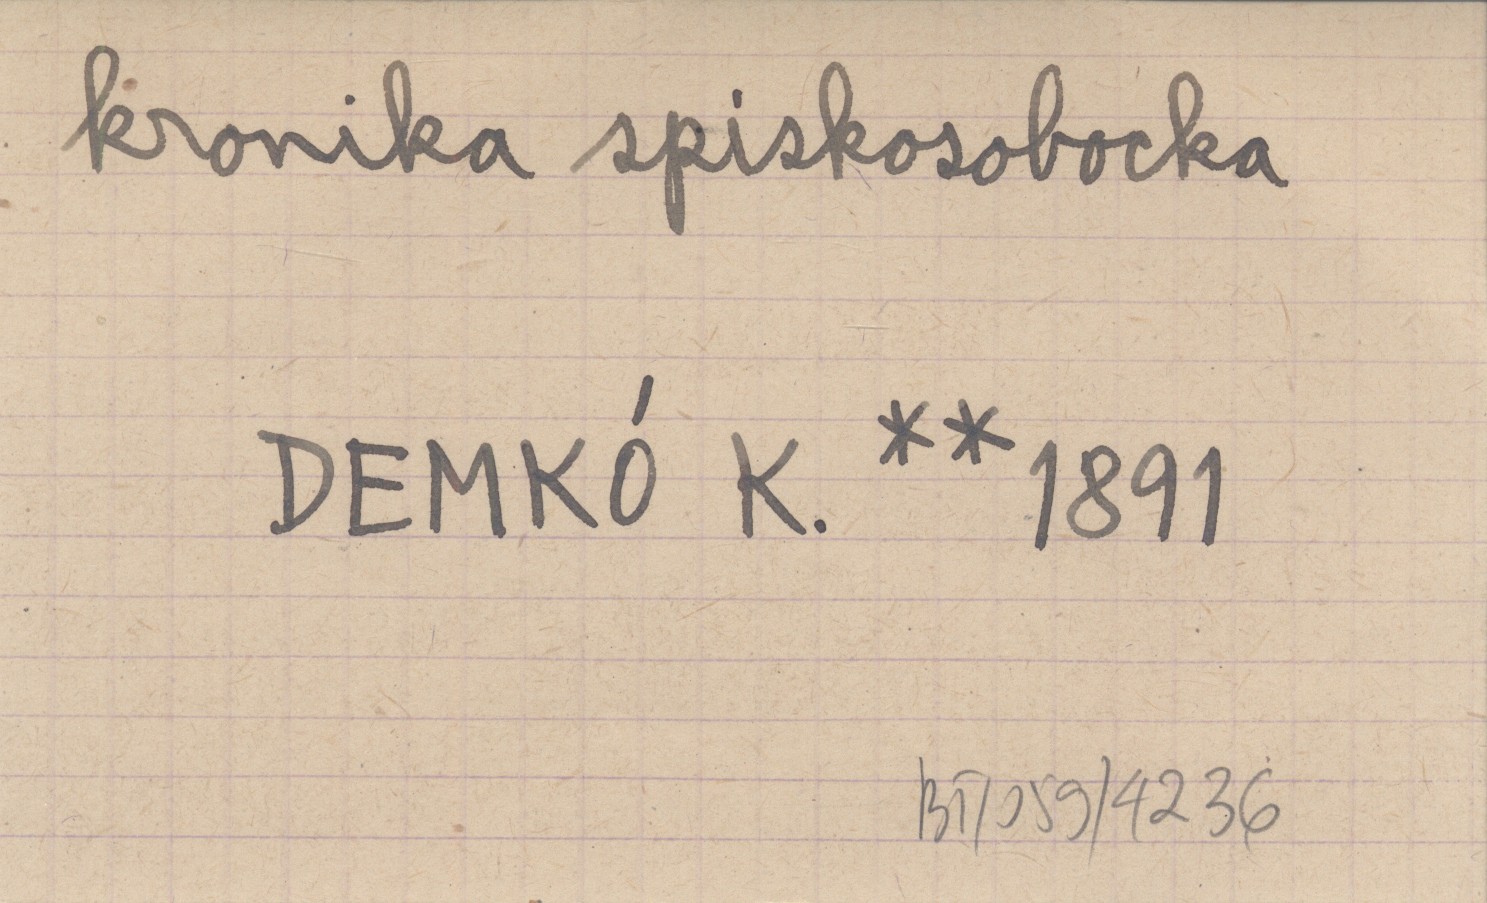 kronika spiskosobocka
DEMKÓ K. **1891
BT/059/4236